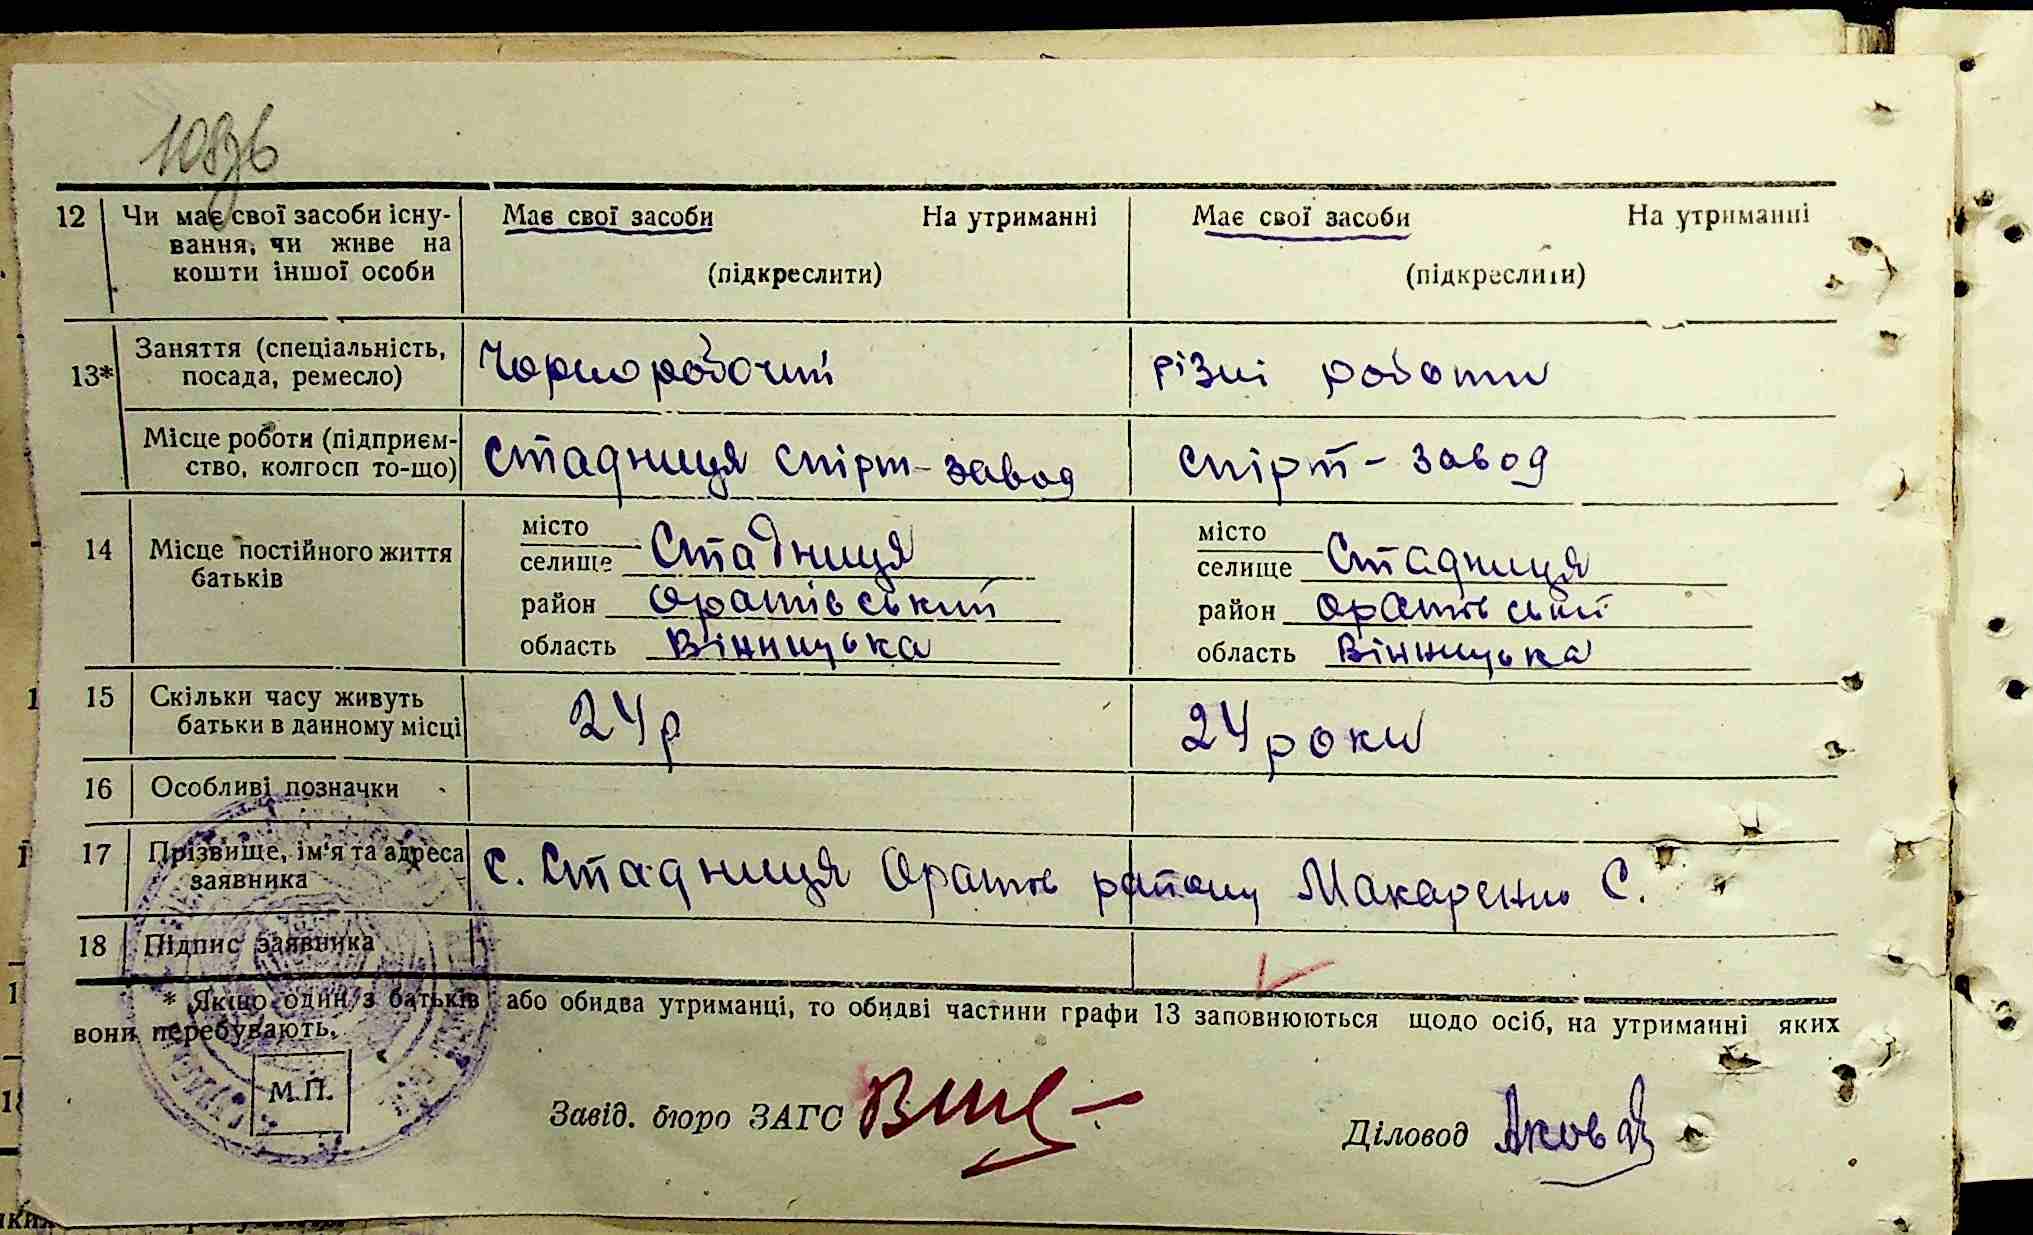 108зв
12 Чи має свої засоби існу- Має свої засоби На утриманні Має свої засоби На утриманні
вання, чи живе на
кошти іншої особи (підкреслити) (підкреслити)
13* Заняття (спеціальність, Чорноробочий різні роботи
посада, ремесло)
Місце роботи (підприєм- Стадниця спірт-завод спірт-завод
ство, колгосп то-що)
14 Місце постійного життя місто місто
батьків селище Стадниця селище Стадниця
район Оратівський район Оратівський
область Вінницька область Вінницька
15 Скільки часу живуть 24 р 24 роки
батьки в данному місці
16 Особливі позначки
17 Прізвище, ім'я та адреса с. Стадниця Оратів району Макаренко С.
заявника
18 Підпис заявника
* Якщо один з батьків або обидва утриманці, то обидві частини графи 13 заповнюються щодо осіб, на утриманні яких
вони перебувають.
М.П.
Завід. бюро ЗАГС Діловод